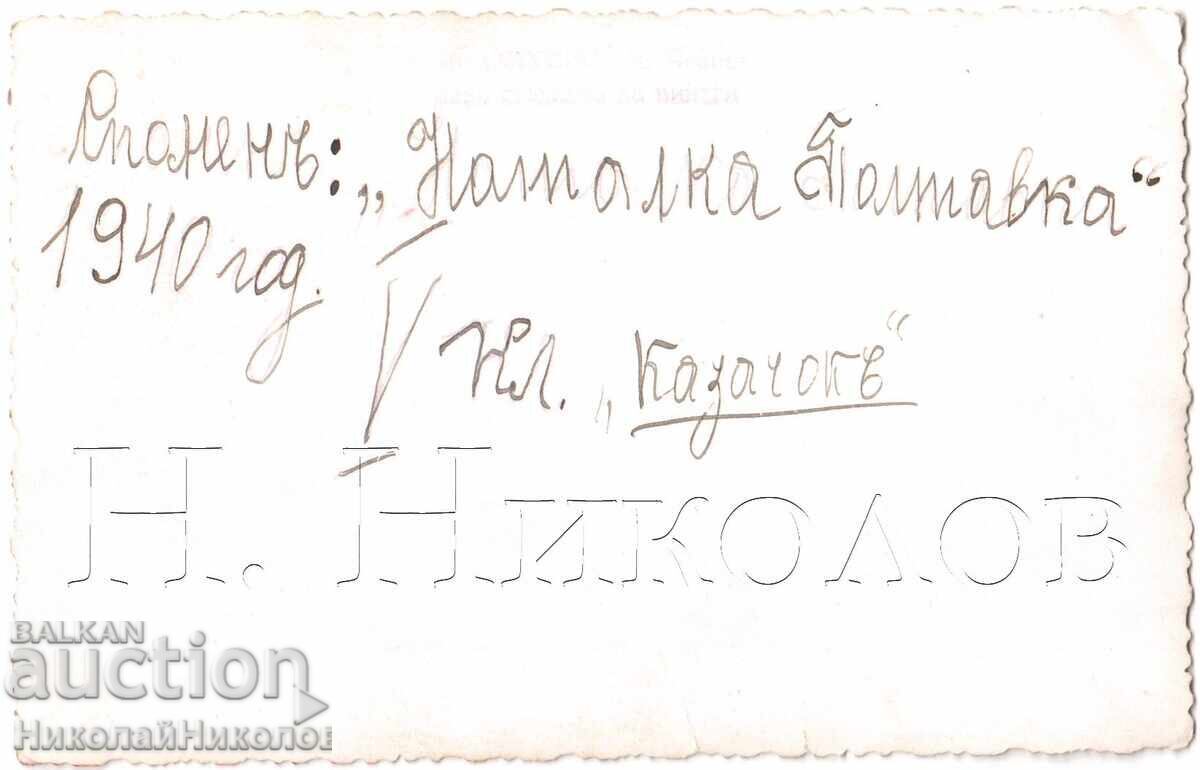 Споменъ: „Наталка Полтавка“
1940 год.
V кл. „Казачокъ“
Н. Николов
BALKAN
auction
НиколайНиколов